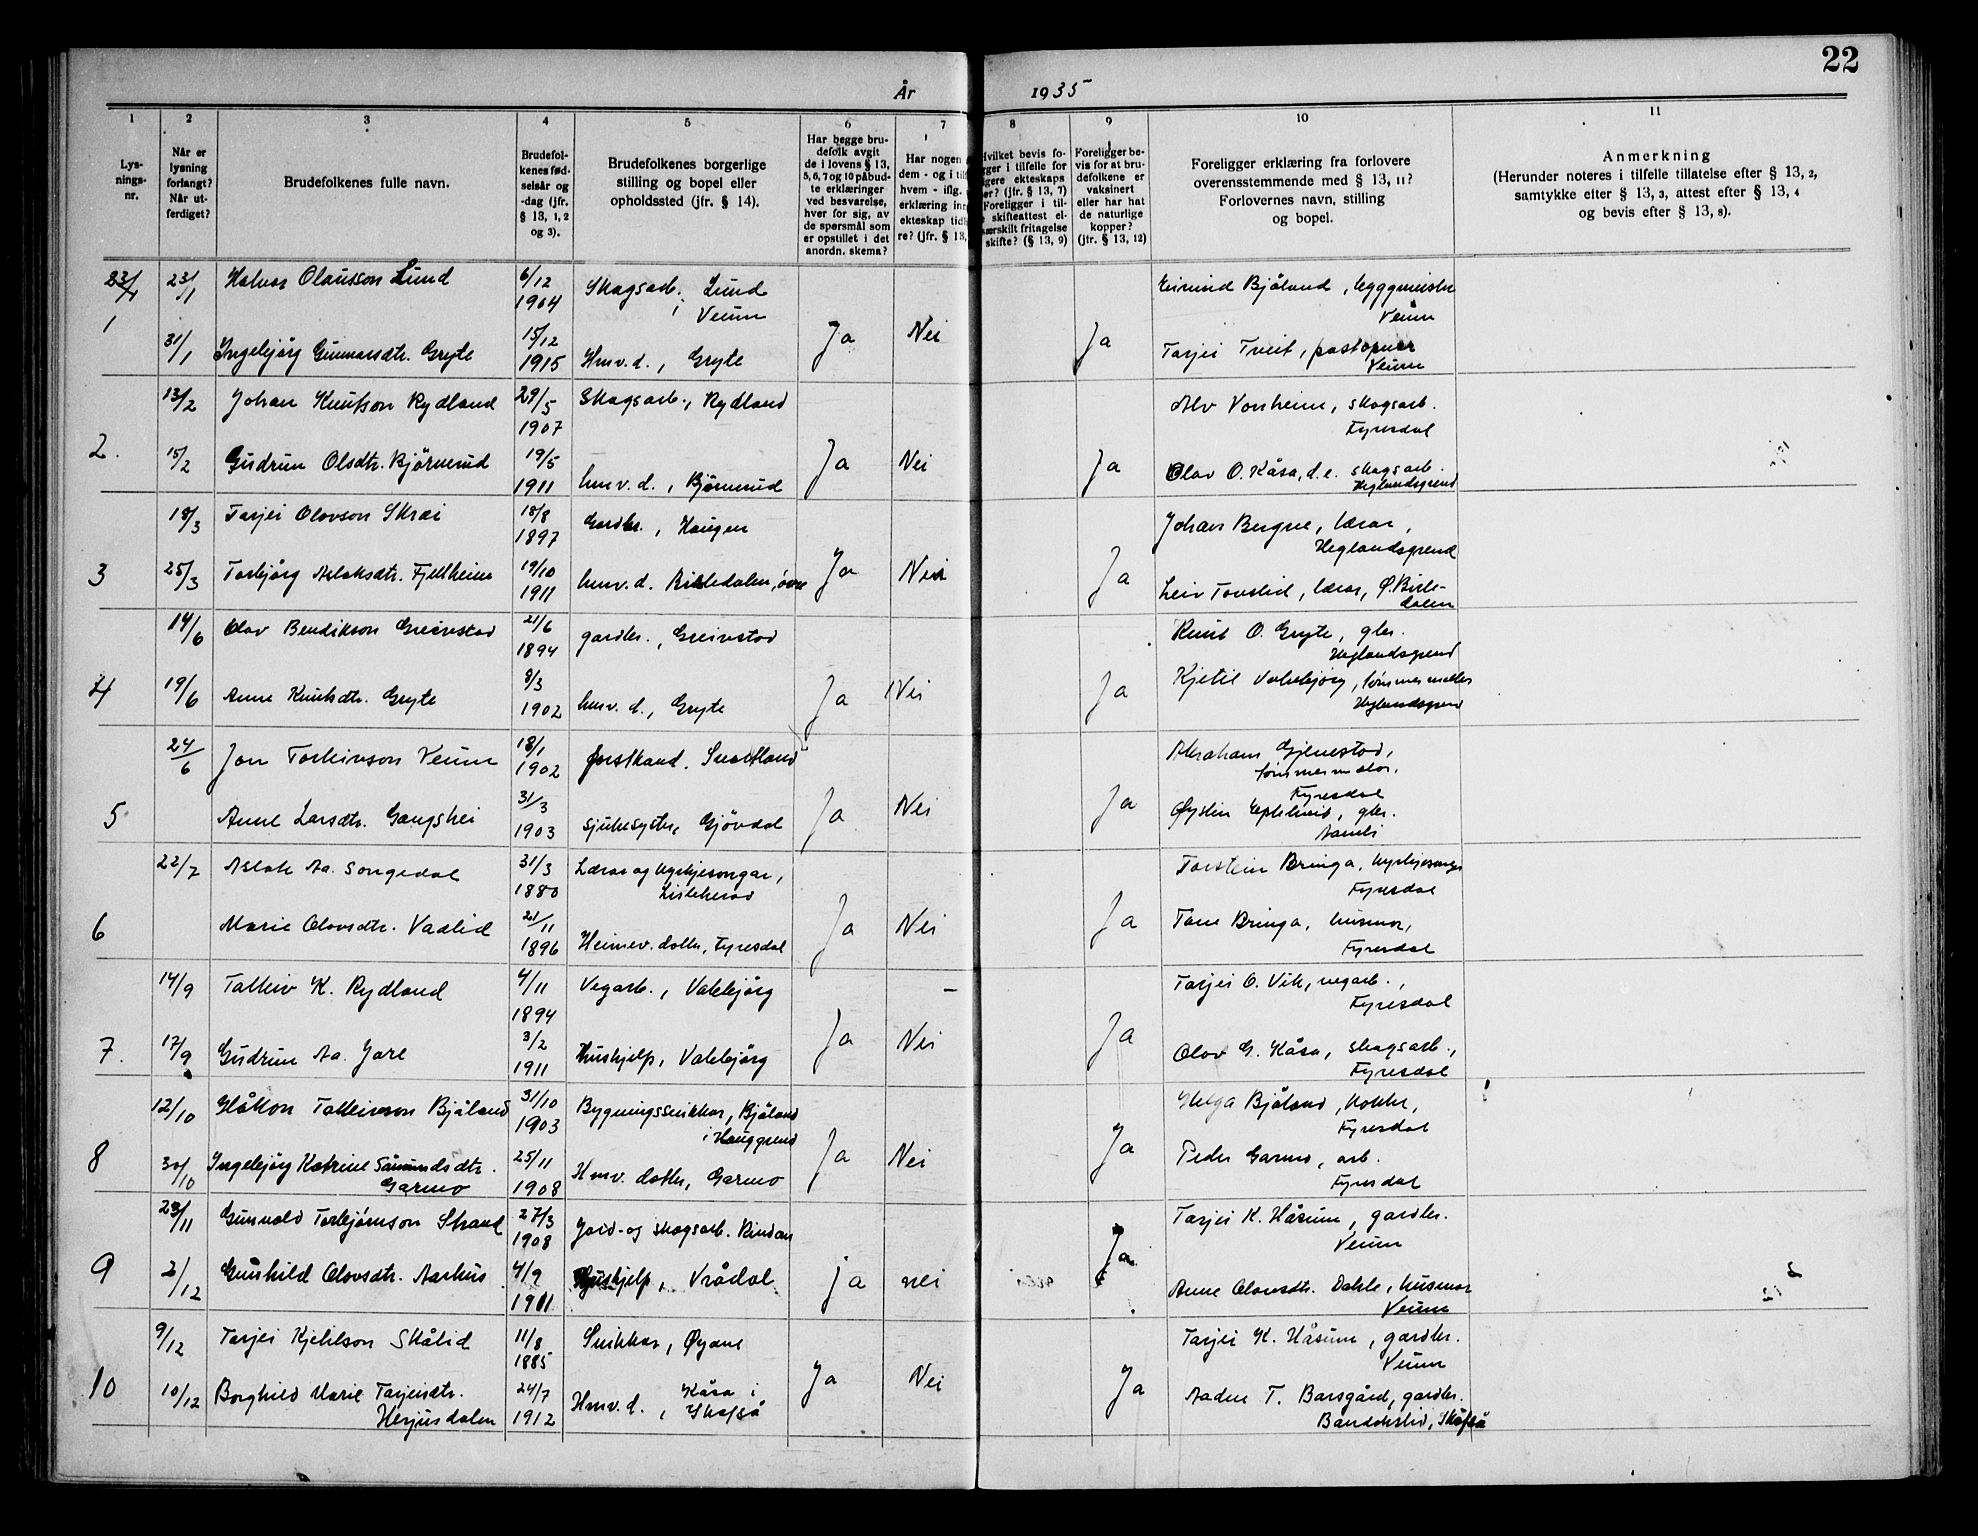 22
År 1935
1 2 3 4 5 6 7 8 9 10 11
Lys-
nings-
nr.
Når er
lysning
forlangt?
Når ut-
ferdiget?
Brudefolkenes fulle navn.
Brudefol-
kenes fød-
selsår og
-dag (jfr.
§ 13, 1, 2
og 3).
Brudefolkenes borgerlige
stilling og bopel eller
opholdssted (jfr. § 14).
Har begge bru-
defolk avgit
de i lovens § 13,
5, 6, 7 og 10 påbud-
te erklæringer
ved besvarelse,
hver for sig, av
de spørsmål som
er opstillet i det
anordn. skema?
Har nogen
dem - og i
hvem - iflg.
erklæring
ekteskap
re? (jfr. § 13,
Hvilket bevis fo-
gger i tilfelle for
igere ekteskaps
er? (jfr. § 13, 7)
Foreligger i til-
e skifteattest el-
særskilt fritagelse
skifte? (§ 13, 9)
Foreligger be-
vis for at bru-
defolkene er
vaksinert
eller har hat
de naturlige
kopper?
(jfr. § 13, 12)
Foreligger erklæring fra forlovere
overensstemmende med § 13, 11?
Forlovernes navn, stilling
og bopel.
Anmerkning
(Herunder noteres i tilfelle tillatelse efter § 13, 2,
samtykke efter § 13, 3, attest efter § 13, 4
og bevis efter § 13, 8).
23/1 23/1 Halvor Olausson Lund 6/12 1904 Skogsarb., Lund i Veum Eivind Bjåland, byggmeister Veum
1 31/1 Ingebjörg Gunnarsdtr. Gryte 15/12 1915 Hmv. d., Gryte Ja Nei Ja Tarjei Tveit, postopnar Veum
13/2 Johan Knutson Rydland 29/5 1907 Skogsarb., Rydland Alv Vonheim, skogsarb. Fyresdal
2. 15/2 Gudrun Olsdtr. Björnerud 19/5 1911 hmv. d., Björnerud Ja Nei Ja Olav O. Kåsa, d.e. skogsarb. Heglandsgrend
18/3 Tarjei Olovson Skrei 18/8 1897 Gardbr., Haugen Johan Bergne, lærar, Heglandsgrend
3 25/3 Torbjörg Aslaksdtr. Fjellheim 19/10 1911 hmv. d. Birtedalen, övre Ja Nei Ja Leiv Tovslid, lærar, Ø. Birte-dalen
14/6 Olav Bendikson Greivstad 21/6 1894 gardbr., Greivstad Knut O. Gryte, gbr. Heglandsgrend
4 19/6 Anne Knutsdtr. Gryte 8/3 1902 hmv. d., Gryte Ja Nei Ja Kjetil Valebjörg, tömmermåler Heglandsgrend
24/6 Jon Torleivson Veum 18/1 1902 forstkand. Svartland Abraham Gjevestad, tömmermålar, Fyresdal
5 Anne Larsdtr. Gangshei 31/3 1903 sjukesyster, Gjövdal Ja Nei Ja Øystein Eptelund, gbr. Aamli
22/7 Aslak Aa. Songedal 31/3 1880 Lærar og kyrkjesongar, Lisleherad Torstein Bringa, kyrkjesongar Fyresdal
6 Marie Olovsdtr. Vadlid 21/11 1896 Heimev. dotter, Fyresdal Ja Nei Ja Tone Bringa, husmor, Fyresdal
14/9 Talleiv K. Rydland 4/11 1894 Vegarb., Valebjörg – Tarjei O. Vik, vegarb., Fyresdal
7. 17/9 Gudrun Aa. Jore 3/2 1911 Hushjelp, Valebjörg Ja Nei Ja Olav G. Kåsa, skogsarb., Fyresdal
12/10 Håkon Talleivson Bjåland 31/10 1903 Bygningssnikkar, Bjåland i Hauggrend Helga Bjåland, kokke, Fyresdal
8 30/10 Ingebjörg Katrine Såmundsdtr. Garmo 25/11 1908 Hmv. dotter, Garmo Ja Nei Ja Peder Garmo, arb. Fyresdal
23/11 Gunvald Torbjörnson Strand 27/3 1908 Jord- og skogsarb. Rindan Tarjei K. Håsum, gardbr. Veum
9 2/12 Gunhild Olovsdtr. Aarhus 4/9 1911 Hushjelp, Vrådal ja nei Ja Anne Olovsdtr. Dahle, husmor Veum
9/12 Tarjei Kjetilson Skålid 11/8 1885 Snikkar, Øyane Tarjei K. Håsum, gardbr. Veum
10 10/12 Borghild Marie Tarjeisdtr. Herjusdalen 24/7 1912 Hmv. d., Kåsa i Skafså Ja Nei Ja Aadne T. Barsgård, gardbr. Bandakslid, Skafså